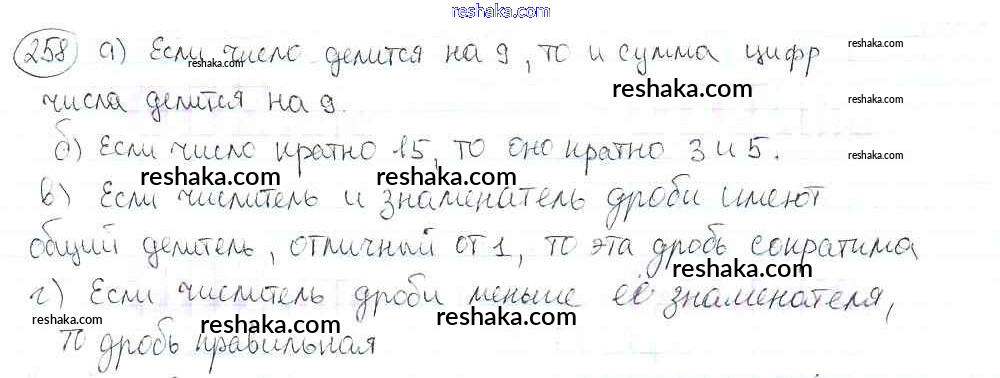 reshaka.com
258 а) Если число делится на 9, то и сумма цифр reshaka.com
reshaka.com
числа делится на 9. reshaka.com reshaka.com
б) Если число кратно 15, то оно кратно 3 и 5. reshaka.com
reshaka.com reshaka.com
в) Если числитель и знаменатель дроби имеют
общий делитель, отличный от 1, то эта дробь сократима
reshaka.com
г) Если числитель дроби меньше её знаменателя,
reshaka.com reshaka.com reshaka.com
то дробь правильная